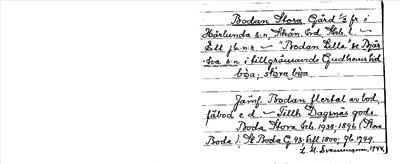 Bodan Stora Gård 1/2 fr. i
Härlunda s:n, Skån. hd, Skb. l. ~
Ett jb.n:r. ~ Bodan Lilla se Bjär-
ka s:n i tillgränsande Gudhems hd
böa; stóra böa
Jämf. Bodan flertal av bod,
fäbod e d ~ Tillh Dagsnäs gods.
Boda Stora Jrb. 1938; 1896 (Stora
Boda). St Boda G. 43; 1800;